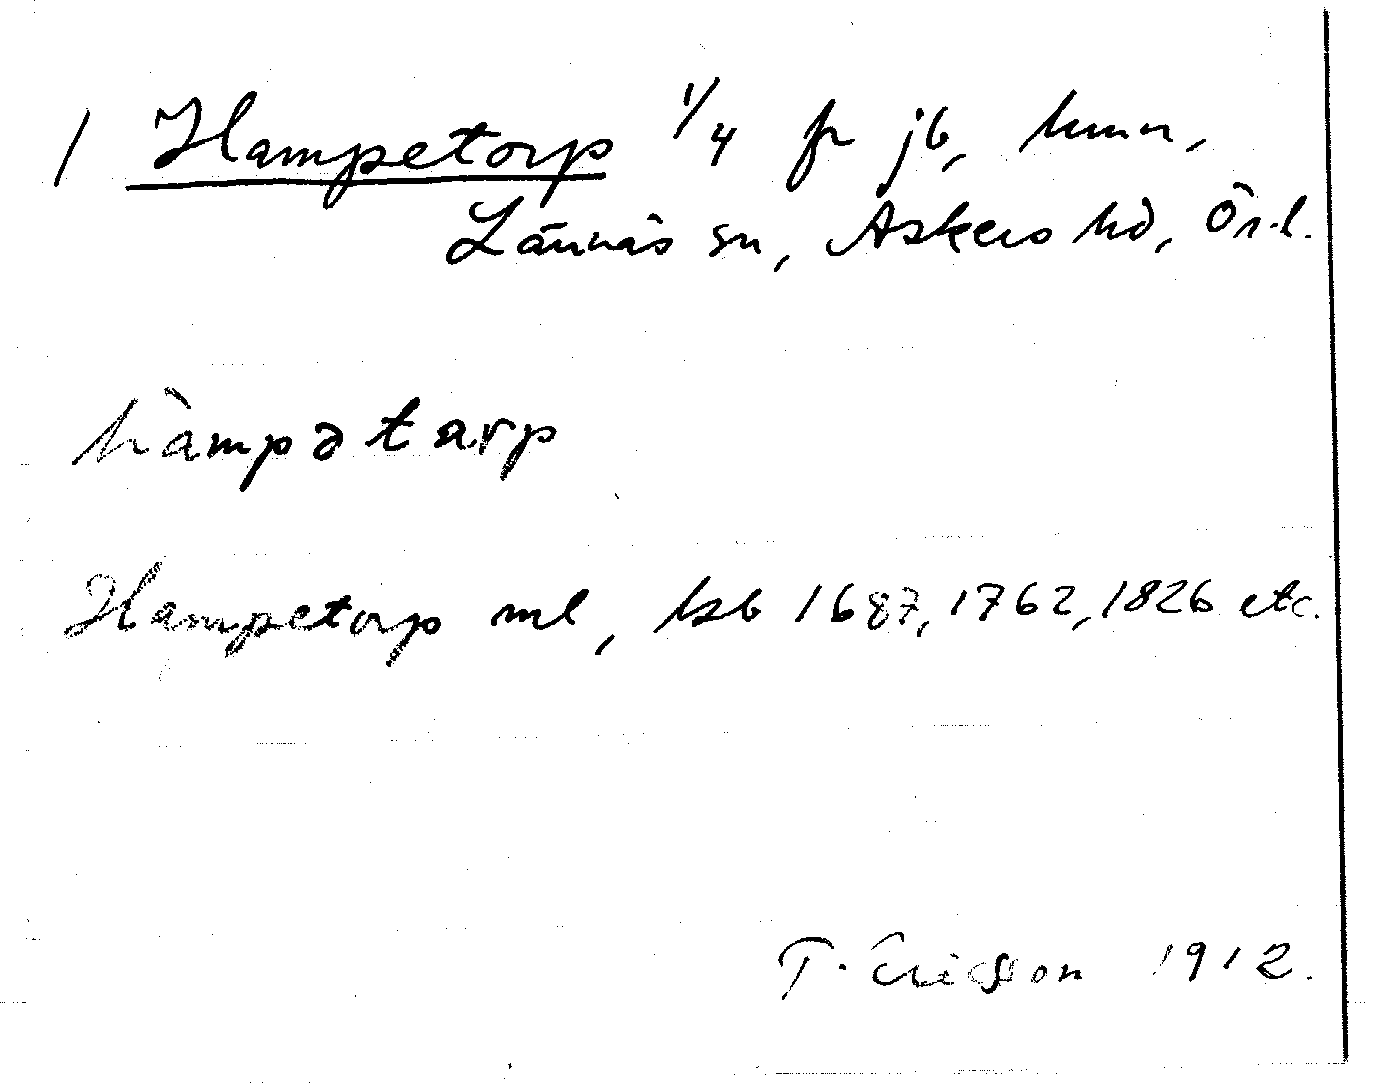 1 Hampetorp 1/4 fr jb, hmn,
Lännäs sn, Askers hd, Ör.l.
hàmpətarp
Hampetorp ml, ksb 1687, 1762, 1826 etc.
T. Ericsson 1912.